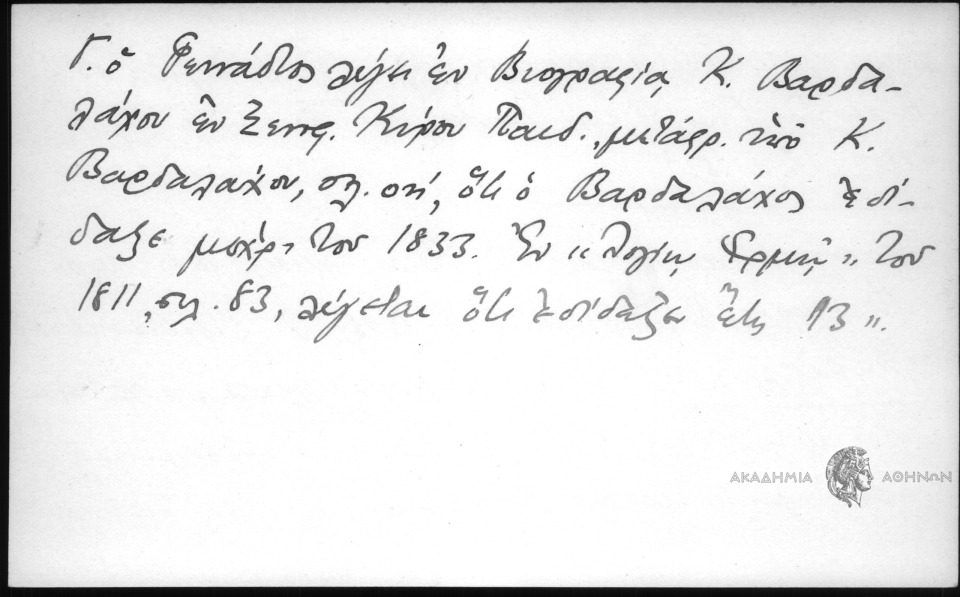 Γ. ὁ Γεννάδιος λέγει ἐν Βιογραφίᾳ Κ. Βαρδα-
λάχου ἐν Ξενοφ. Κύρου Παιδ., μετάφρ. ὑπὸ Κ.
Βαρδαλάχου, σελ. ὅτι ὁ Βαρδαλάχος ἐδί-
δαξε μέχρι τοῦ 1833. Ἐν "Λογίῳ Ἑρμῇ" τοῦ
1811, σελ. 83, λέγεται ὅτι ἐδίδαξεν ἔτη 13".
ΑΚΑΔΗΜΙΑ ΑΘΗΝΩΝ